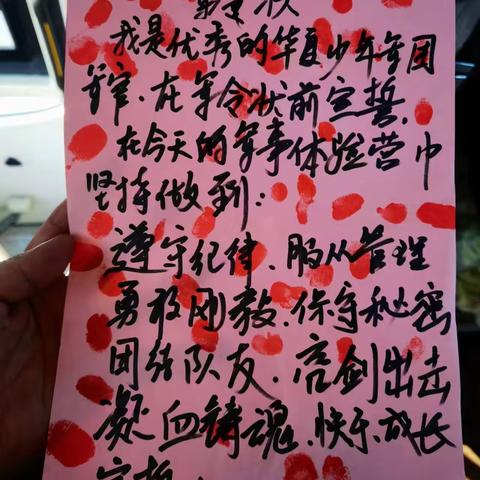 我是优秀的华夏少年军团
军官、在军令状前宣誓,
在今天的军事体验营中
坚持做到:
遵守纪律、服从管理
勇敢刚毅、保守秘密
团结队友、亮剑出击
凝血铸魂、快乐成长